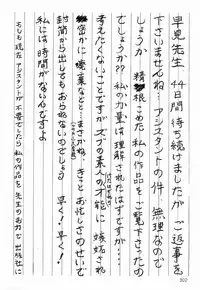 早見先生 44日間待ち続けましたが ご返事を
下さいませんね。アシスタントの件、無理なので
しょうか。精根こめた私の作品をご覧下さったの
でしょうか?? 私の力量は理解されたはずですが…
考えたくないことですが ズブの素人の才能に嫉妬され
密かに嫌悪などと…まさかね。きっとお忙しさのせいで
封筒から出してもおられないのでしょう 早く!早く!
私には時間がないんですよ
もしも現在アシスタントが不要でしたら私の作品を先生のお力で出版社に
302